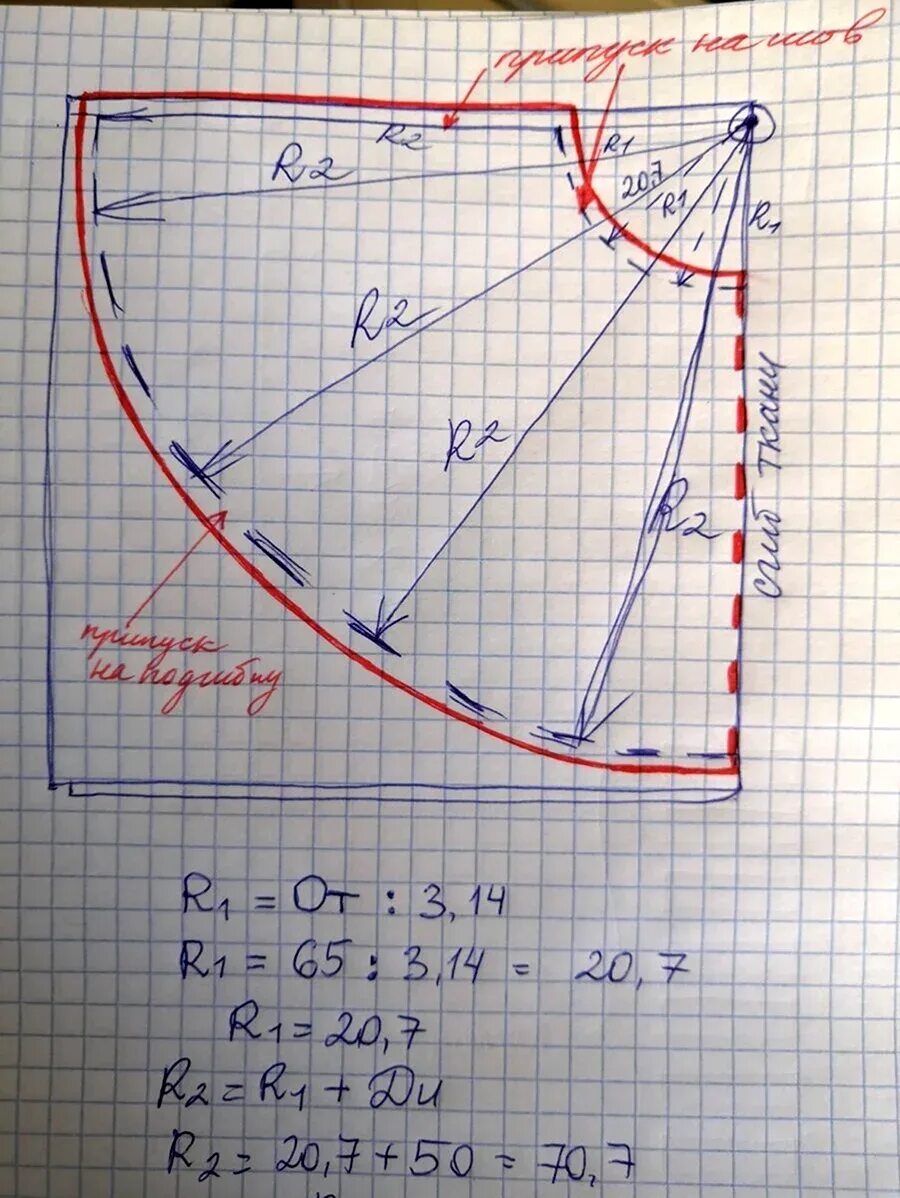 припуск на шов
R2
R1
R2
20,7
R1
R1
R2
R2
R2
сгиб ткани
припуск
на подгибку
R1 = От : 3,14
R1 = 65 : 3,14 = 20,7
R1 = 20,7
R2 = R1 + Ди
R2 = 20,7 + 50 = 70,7